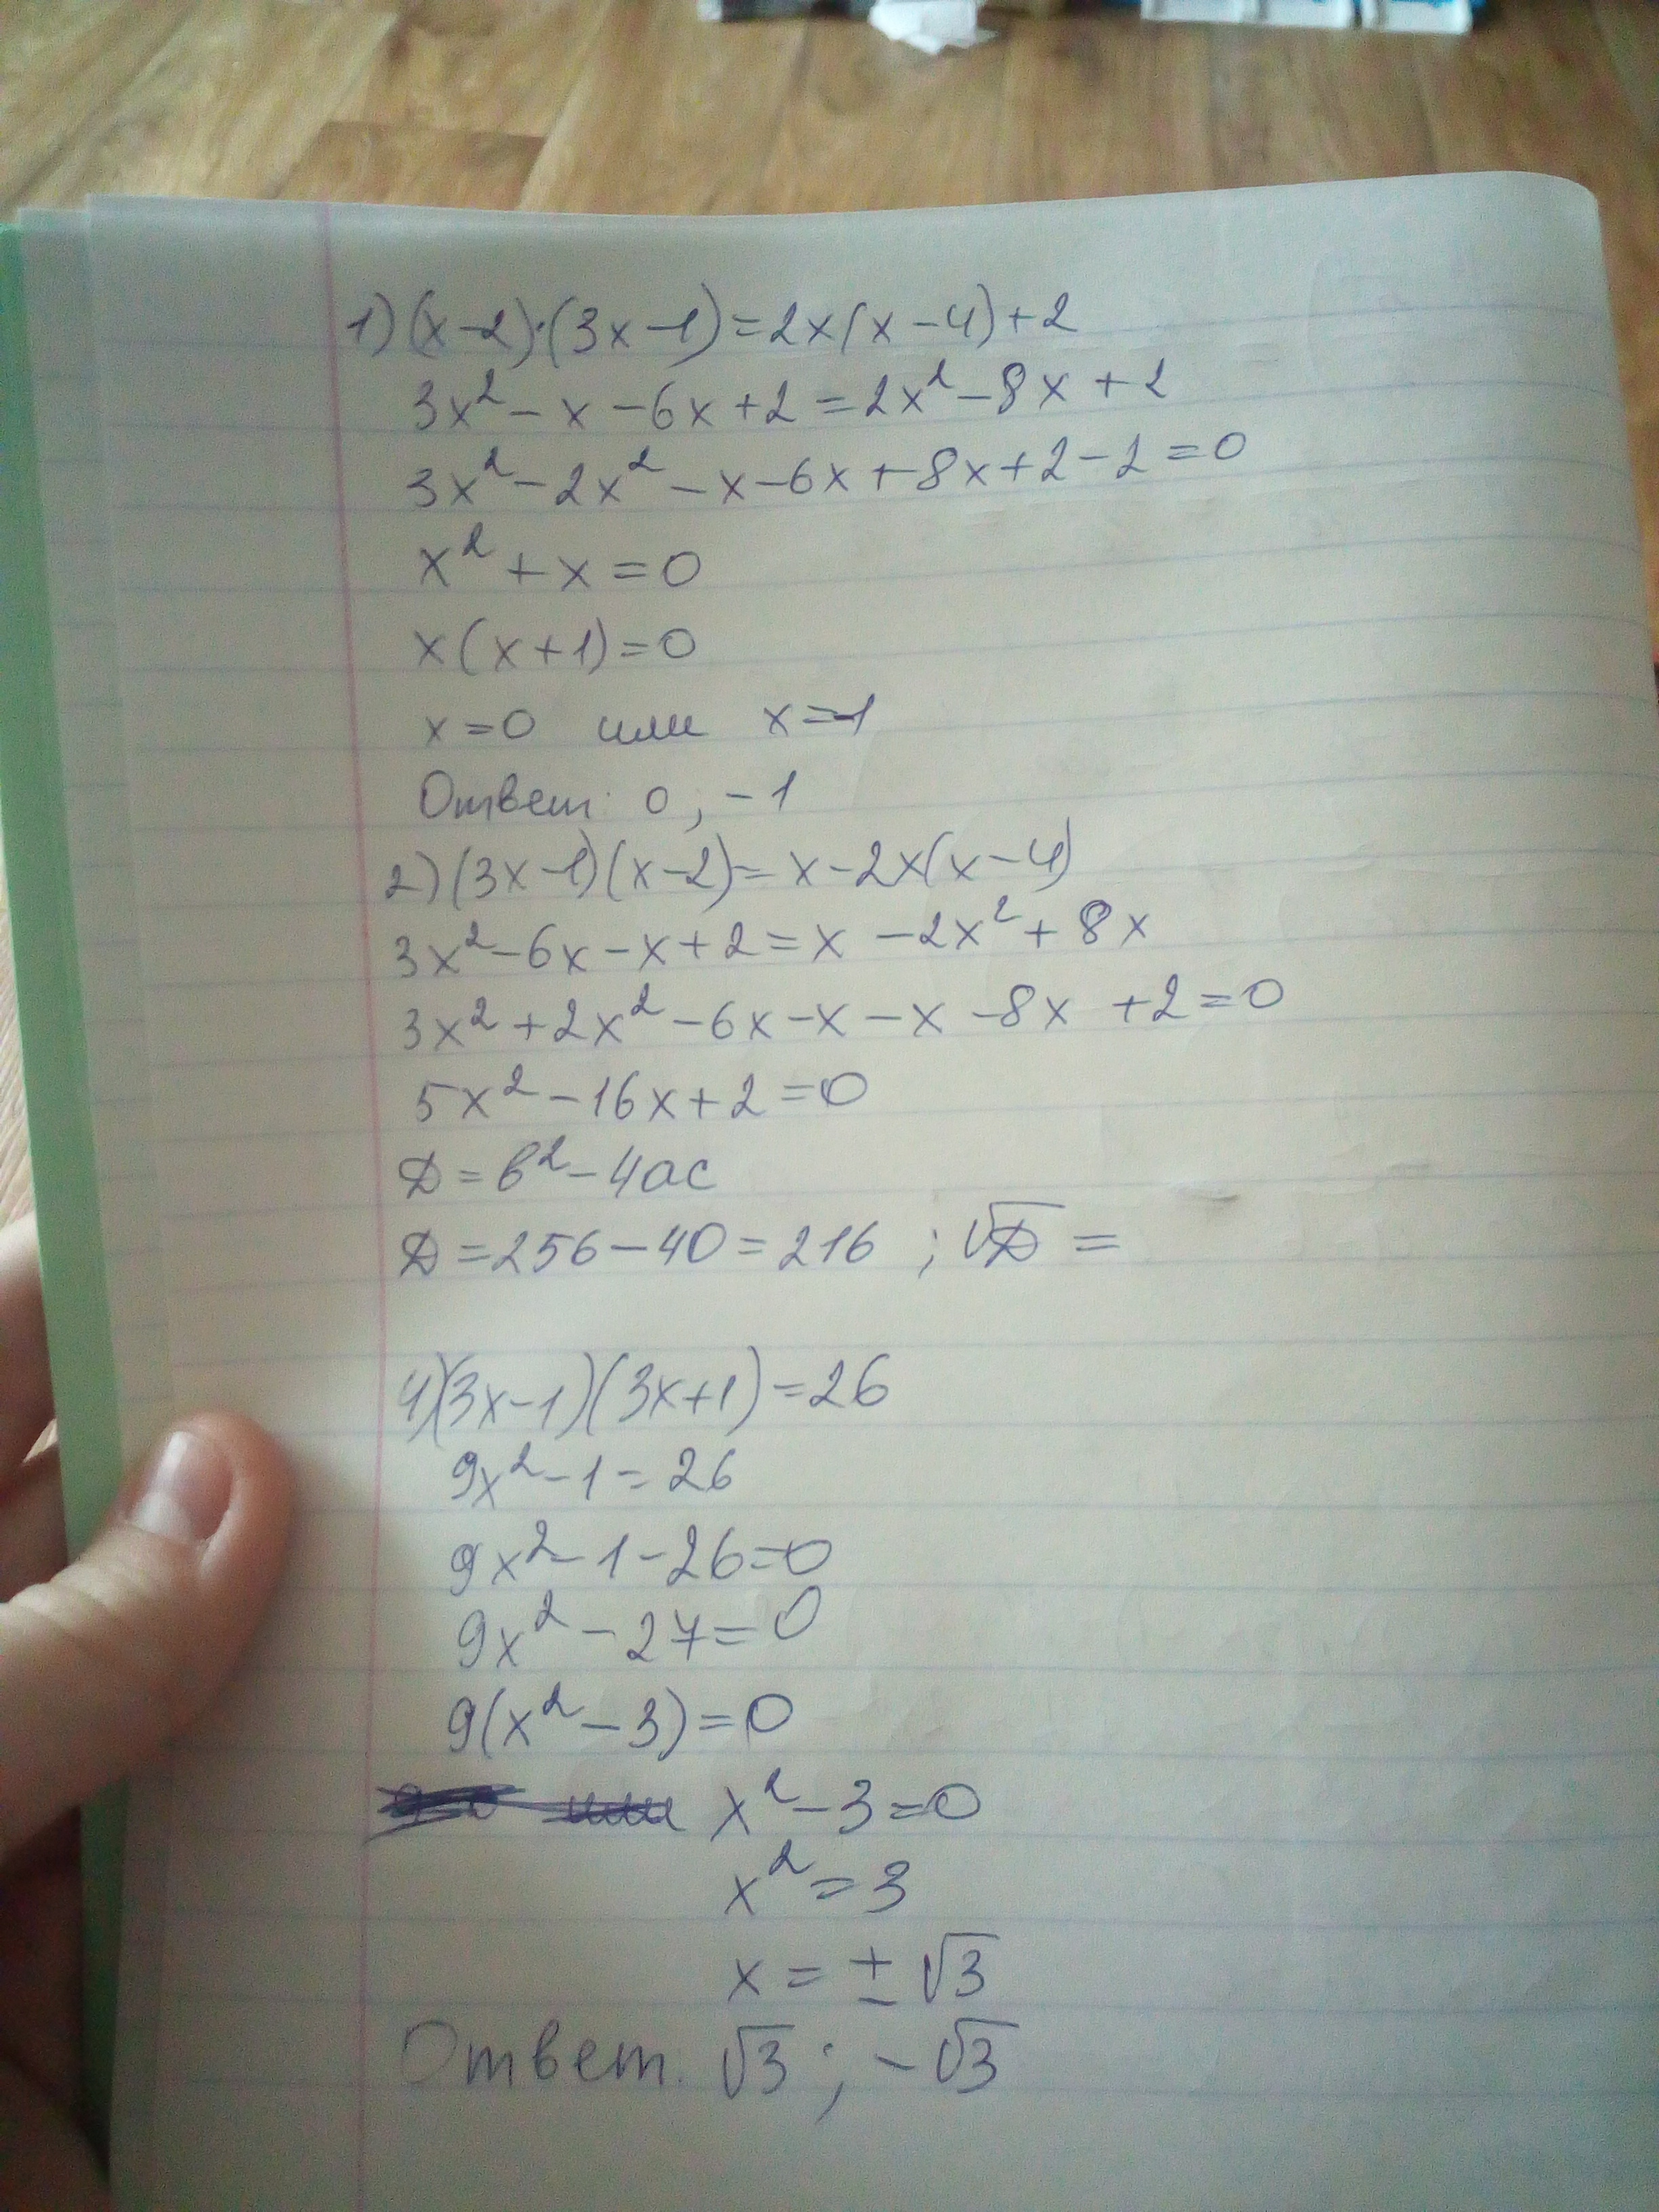 1) (x-2)·(3x-1)=2x(x-4)+2
3x²-x-6x+2=2x²-8x+2
3x²-2x²-x-6x+8x+2-2=0
x²+x=0
x(x+1)=0
x=0 или x=-1
Ответ: 0; -1
2) (3x-1)(x-2)=x-2x(x-4)
3x²-6x-x+2=x-2x²+8x
3x²+2x²-6x-x-x-8x+2=0
5x²-16x+2=0
D=b²-4ac
D=256-40=216 ; √D =
4)(3x-1)(3x+1)=26
9x²-1=26
9x²-1-26=0
9x²-27=0
9(x²-3)=0
x²-3=0
x²=3
x=±√3
Ответ. √3; -√3